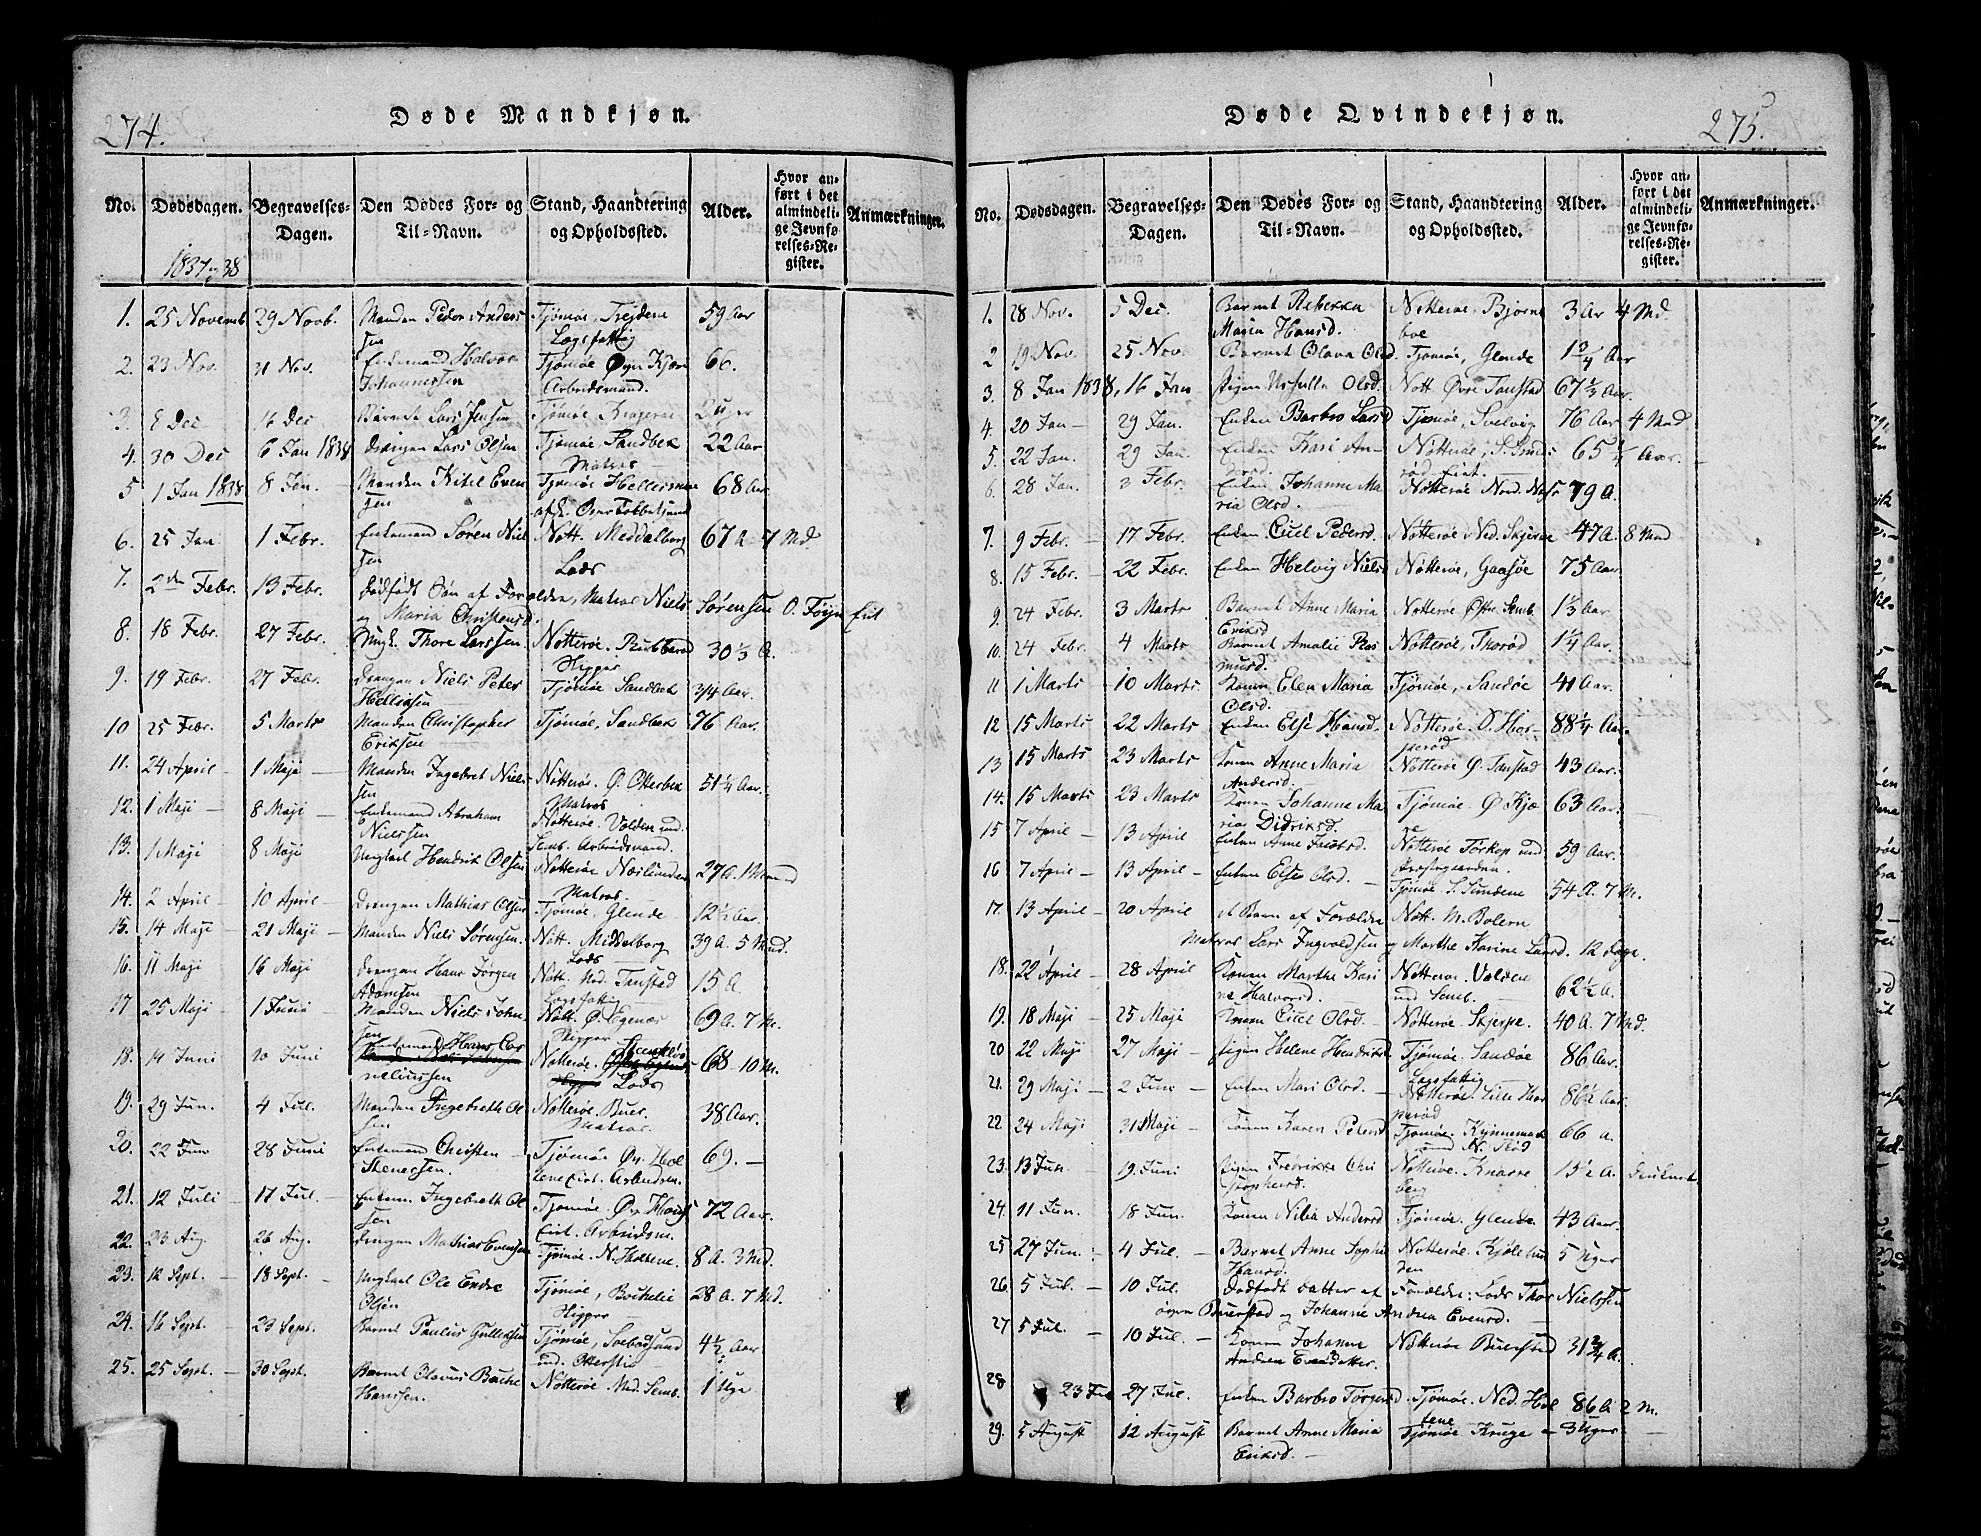 274.
Døde Mandkjøn.
No. Dødsdagen. Begravelses-Dagen. Den Dødes For- og Til-Navn. Stand, Haandtering og Opholdssted. Alder. Hvor anført i det almindelige Jevnførelses-Register. Anmærkninger.
1837 & 38
1. 25 Novemb 29 Novb. Manden Peder Anders Tjømøe, 59 Aar
sen Lagsfattig
2. 23 Nov. Nov. Enkemand Halvor Tjømøe Øvr. Kjøre 66.
Johannessen Arbeidsmand.
3. 8 Dec 16 Dec Barnet Lars Jensen Tjømøe
4. 30 Dec 6 Jan 1838 Drengen Lars Olsen Tjømøe Sandbek 22 Aar
Matros
5 1 Jan 1838. 8 Jan. Manden Kittel Even Tjømøe 68 Aar
sen
6. 25 Jan 1 Febr. Enkemand Søren Niel Nøtt. Meddelborg 67 A 7 Md.
sen Lods
7. 2den Febr. 13 Febr. Dødfødt Søn af Forælden, Matros Niels Sørensen O. Føyn Eie
og Maria Christensd.
8. 18 Febr. 27 Febr. Ungk. Thore Larssen Nøtterøe. 30 1/3 A.
Skipper
9. 19 Febr. 27 Febr. Drengen Niels Peter Tjømøe Sandbek 3/4 Aar.
Hellesen
10 25 Febr. 5 Marts Manden Christopher Tjømøe, Sandbek 76 Aar.
Eriksen
11. 24 April 1 Maji Manden Ingebret Niels Nøtterøe. Ø. Otterbek 51 1/4 Aar.
sen Matros
12. 1 Maji 8 Maji Enkemand Abraham Nøtterøe. Volden und.
Nielssen Semb. Arbeidsmand.
13. 1 Maji 8 Maji Ungkarl Hendrik Olsen Nøtterøe Næslunden 27 A. 1 Maaned
Matros.
14. 2 April 10 April Drengen Mathias Olsen Tjømøe. Glende 12 1/2 Aar
15. 14 Maji 21 Maji Manden Niels Sørensen. Nøtt. Middelborg 39 A. 5 Mnd.
Lods
16. 11 Maji 16 Maji Drengen Hans Jørgen Nøtt. Ned. Tanstad 15 A.
Adamsen Lagsfattig
17 25 Maji 1 Juni Manden Niels John Nøtt. Ø. Egenæs 69 A. 7 M.
sen Skipper
18. 14 Juni 20 Juni Enkemand Hans Cor Nøtterøe. 68 10 M.
neliussen Lods
19. 29 Jun. 4 Jul. Manden Ingebreth Ol Nøtterøe. Buer. 38 Aar.
sen Matros.
20. 22 Jun 28 Juni Enkemand Christen Tjømøe Øv. Hol 69.
Stenersen. tene Arbeidsm.
21. 12 Juli 17 Jul. Enkem. Ingebreth Ol Tjømøe. Øv. 72 Aar.
sen Arbeidsm.
22. 23 Aug. 26 Aug. Drengen Mathias Evensen Tjømøe. N. Holtene. 8 A. 3 Md.
23. 12 Sept. 18 Sept. Ungkarl Ole Endre Tjømøe, 28 A. 7 Md.
Olsen Skipper
24. 16 Sept. 23 Sept. Barnet Paulus Gulleksen Tjømøe, 4 1/2 Aar
und. Otterstie
25. 25 Sept. 30 Sept. Barnet Olavus Bache Nøtterøe. Ned. Semb. 1 Uge
Hanssen.
275.
Døde Qvindekjøn.
No. Dødsdagen. Begravelses-Dagen. Den Dødes For- og Til-Navn. Stand, Haandtering og Opholdssted. Alder. Hvor anført i det almindelige Jevnførelses-Register. Anmærkninger.
1. 28 Nov. 5 Dec. Barnet Rebekka Nøtterøe, Bjørne 3 Ar 4 Md
Maria Hansd. boe
2 19 Nov. 25 Nov. Barnet Olava Olsd. Tjømøe, Glende 1 3/4 Aar
3. 8 Jan 1838, 16 Jan Pigen Ursulla Olsd. Nøtt Øvre Tanstad 67 1/2 Aar.
4. 20 Jan 29 Jan. Enken Barbro Larsd Tjømøe, Svelvig 76 Aar 4 Mnd
5. 22 Jan. 29 Jan. Enken Kari An- Nøtterøe, 65 1/4 Aar.
dersd.
6. 28 Jan. 3 Febr. Enken Johanne Ma Nøtterøe Nord. 79 A.
ria Olsd.
7. 9 Febr. 17 Febr. Enken Citel Pedersd. Nøtterøe Ned. Skjerve 47 A. 8 Mnd
8. 15 Febr. 22 Febr. Enken Helvig Nielsd Nøtterøe, Gaasøe 75 Aar.
9. 24 Febr. 3 Marts Barnet Anne Maria Nøtterøe Østre Semb. 1 1/3 Aar
Eriksd
10. 24 Febr. 4 Marts Barnet Amalie Ras Nøtterøe, Thorød 1 1/4 Aar.
musd.
11 1 Marts 10 Marts. Konen Elen Maria Tjømøe, Sandøe 41 Aar.
Olsd.
12 15 Marts 22 Marts Enken Else Hansd. Nøtterøe. O. Hor- 88 1/4 Aar.
perød
13 15 Marts 23 Marts Konen Anne Maria Nøtterøe Ø. Tanstad 43 Aar.
Andersd.
14. 15 Marts 23 Marts Konen Johanne Ma Tjømøe. Ø Kjæ 63 Aar.
ria Didriksd.
15 7 April 13 April Enken Anne Nøtterøe Torkop und 59 Aar.
Præstegaarden.
16 7 April 13 April Enken Else Olsd. Tjømøe S. Sundene 54 A. 7 M.
17. 13 April 20 April et Barn af Forældre Nøtt. M. Bolern
Matros Lars Ingvoldsen og Marthe Karine Larsd. 12 Dage.
18. 22 April 28 April Konen Marthe Kari Nøtterøe. Volden 62 1/2 A.
ne Halvorsd. und Semb.
19. 18 Maji 25 Maji Konen Citel Olsd. Nøtterøe. Skjerpe. 40 A. 7 Md.
20 22 Maji 27 Maji Pigen Helene Hendriksd Tjømøe. Sandøe 86 Aar.
Lagsfattig
21. 29 Maji 2 Juni Enken Mari Olsd. Nøtterøe. Lille Hor 86 1/2 Aar.
perød
22 24 Maji 31 Maji Konen Karen Petersd Tjømøe. 66 A.
und N. Rød
23. 13 Jun. 19 Juni Pigen Fredrikke Chri Nøtterøe. Knarre 15 1/2 A.
stophersd. berg
24. 11 Jun. 18 Jun. Konen Andersd Tjømøe. Glende 43 Aar.
25 27 Jun. 4 Jul. Barnet Anne Sophie Nøtterøe. 5 Uger
Hansd.
26. 5 Jul. 10 Jul. Dødfødt Datter af Forældre: Lods Thor Nielssen
øvre Buerstad og Johanne Andrea Evensd.
27 5 Jul. 10 Jul. Konen Johanne Nøtterøe Buerstad 31 3/4 A.
Andrea Evensdatter.
28 23 Jul 27 Jul. Enken Barbro Torgersd. Tjømøe. Ned. Hol 86 A 2 M.
tene
29. 5 August 12 August Barnet Anne Maria Tjømøe Kruge 3 Uger
Eriksd.